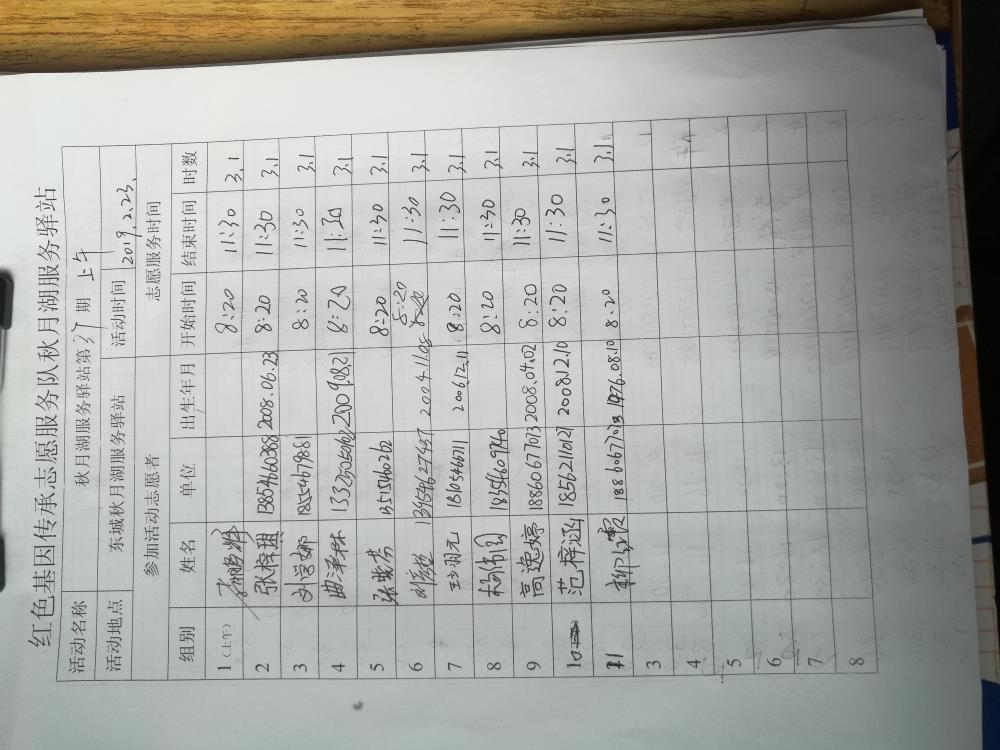 红色基因传承志愿服务队秋月湖服务驿站
活动名称 秋月湖服务驿站第37期 上午
活动地点 东城秋月湖服务驿站 活动时间 2019.2.23.
参加活动志愿者 志愿服务时间
组别 姓名 单位 出生年月 开始时间 结束时间 时数
1(上午) 8:20 11:30 3.1
2 张梓琪 13854660388 2008.06.23 8:20 11:30 3.1
3 18554679881 8:20 11:30 3.1
4 曲泽林 2009.08.21 8:20 11:30 3.1
5 张晓芳 8:20 11:30 3.1
6 13954627437 2004.11.05 8:20 11:30 3.1
7 18105466711 2006.12.11 8:20 11:30 3.1
8 18356609740 8:20 11:30 3.1
9 高逸婷 18860677013 2008.04.02 8:20 11:30 3.1
10 范梓涵 18562110121 2008.12.10 8:20 11:30 3.1
11 18860677013 1976.08.10 8:20 11:30 3.1
3
4
5
6
7
8